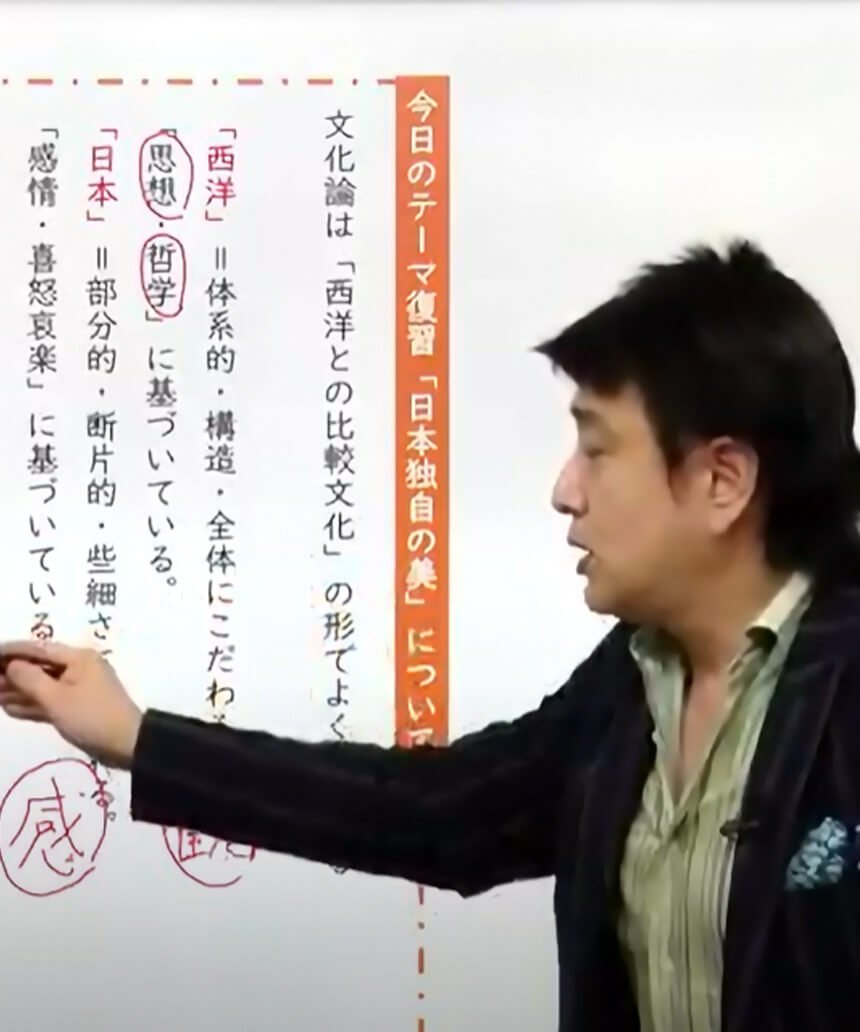 今日のテーマ復習「日本独自の美」について
文化論は「西洋との比較文化」の形でよく
「西洋」＝体系的・構造・全体にこだわ
「思想・哲学」に基づいている。
「日本」＝部分的・断片的・些細さ
る。
「感情・喜怒哀楽」に基づいている
感